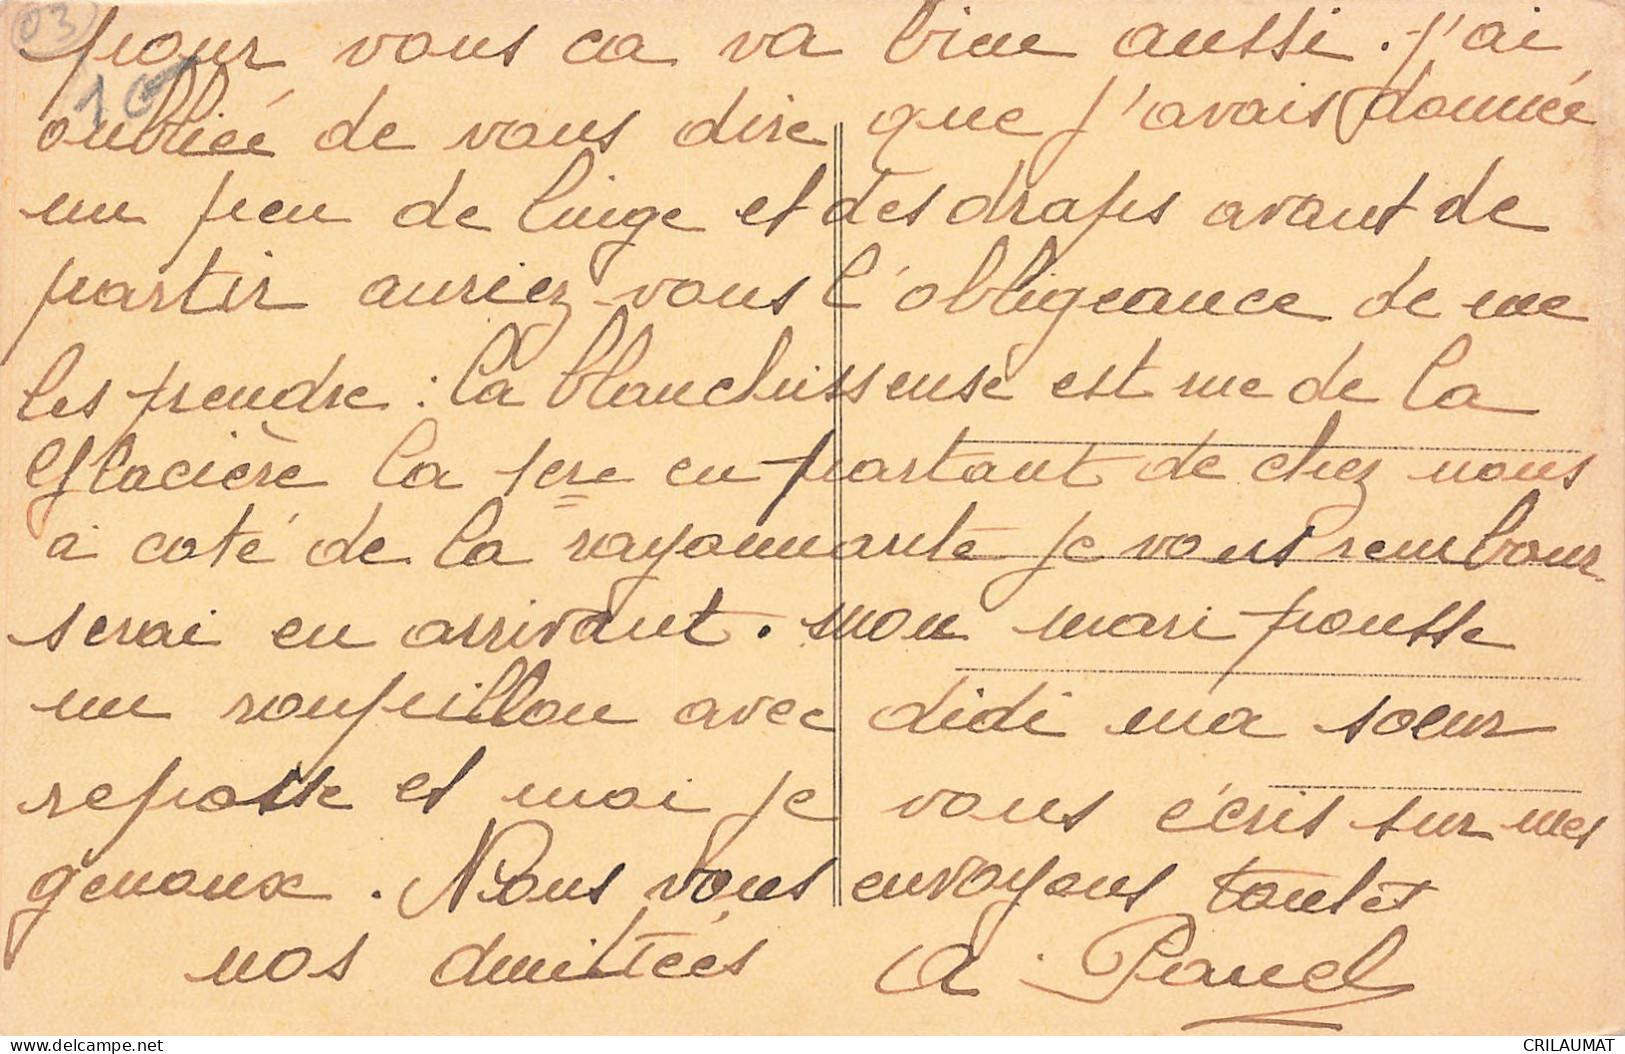 03
10
pour vous ca va bien aussi. j'ai
oubliée de vous dire que j'avais donnée
un peu de linge et des draps avant de
partir auriez-vous l'obligeance de me
les prendre : la blanchisseuse est rue de la
Glacière la 1ere en partant de chez nous
a coté de la rayonnante je vous rembour
serai en arrivant. mon mari pousse
un roupillon avec didi ma soeur
reposse et moi je vous écris sur mes
genoux. Nous vous envoyons toutes
nos amittées A
www.delcampe.net
CRILAUMAT